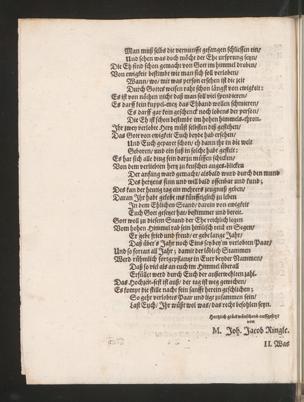 Man muß selbs die vernunfft gefangen schliessen ein/
Und sehen was doch möcht der Ehe ursprung seyn/
Die Eh sind schon gemacht von Gott im himmel droben/
Von ewigkeit bestimbt wie man sich soll verloben/
Wann/ wo/ mit was person ersehen ist die zeit
Durch Gottes weisen raht schon längst von ewigkeit:
Es ist von nöhten nicht daß man soll viel
Es darff kein kuppel-mez das Ehband wollen schmieren/
Es darff gar kein geschenck noch lobens der person/
Die Eh ist schon bestimbt im hohen himmels-thron.
Ihr zwey verlobte Herz müßt selbsten diß gestehen/
Das Gott von ewigkeit Euch beyde hab ersehen/
Und Euch geparet schon/ eh dann ihr in die welt
Geboren/ und ein solche
Es hat sich alle ding sein darzu müssen schicken/
Von dem verliebten herz zu
Der anfang ward gemacht/ alsbald wurd durch den mund
Des herzens sinn und will bald offenbar und kund;
Des kan der heutig tag ein mehrers zeugnuß geben/
Daran Ihr habt gelebt ins künfftiglich zu leben
In dem Ehlichen Stand/ darein von ewigkeit
Euch Gott gesezet hat/ bestimmet und bereit.
Gott woll zu diesem Stand der Ehe reichlich legen
Vom hohen Himmel rab sein und ein Segen/
Er gebe fried und freud/ er gebe lange Jahr/
Daß über's Jahr noch Eins sey bey'm verliebten Paar/
Und so fortan all Jahr; damit der löblich Stammen
Werd rühmlich fortgepflanzt in Eurer beyder Nammen/
Daß so viel als an euch im Himmel überall
Erfüllet werd durch Euch der außerwehlten zahl.
Das Hochzeit-fest ist auß/ der tag ist weg gewichen/
Es kompt die stille nacht sein sanfft herein geschlichen;
So geht verliebtes Paar und ligt zusammen fein/
Laßt Euch/ Ihr wüßt wol was/ das recht befohlen seyn.
Herzlich glückwünschend auffgesetzt
von
M. Joh. Jacob Ringle.
II. Was